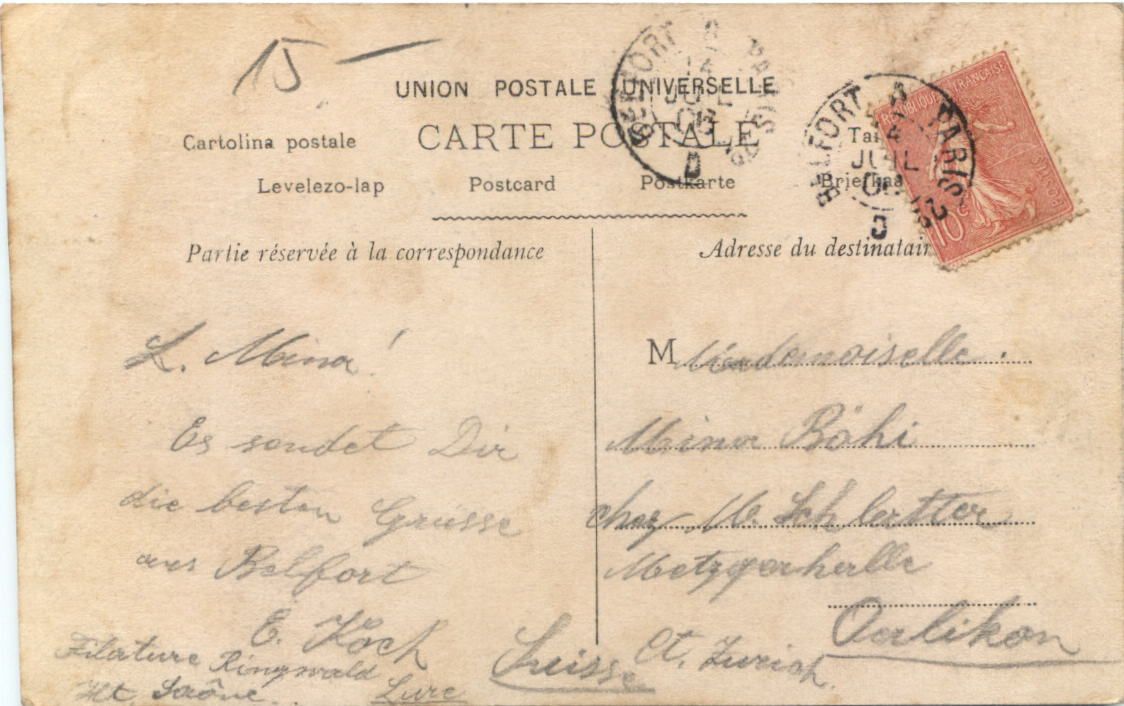 15 —
UNION POSTALE UNIVERSELLE
Cartolina postale CARTE POSTALE
Levelezo-lap Postcard Postkarte
BELFORT A PARIS
JUIL
D
BELFORT A PARIS
JUIL
REPUBLIQUE FRANÇAISE
10c
Partie réservée à la correspondance
L. Mina!
Es sendet Dir
die besten Grüsse
aus Belfort
E. Koch
Filature Ringwald
Ht. Saône. Lure
Adresse du destinatair
M Mademoiselle.
Mina Böhi
chez M. Schlatter
Metzgerhalle
Oerlikon
Suisse Ct. Zurich.